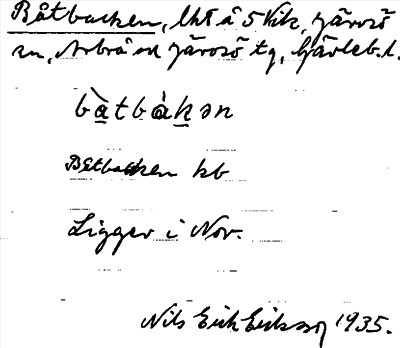 Båtbacken, lht å 5 Vik, Järvsö
sn, Arbrå och Järvsö tg, Gävleb. l.
bàtbàkən
Båtbacken kb
Ligger i Nor.
Nils Erik Eriksson 1935.